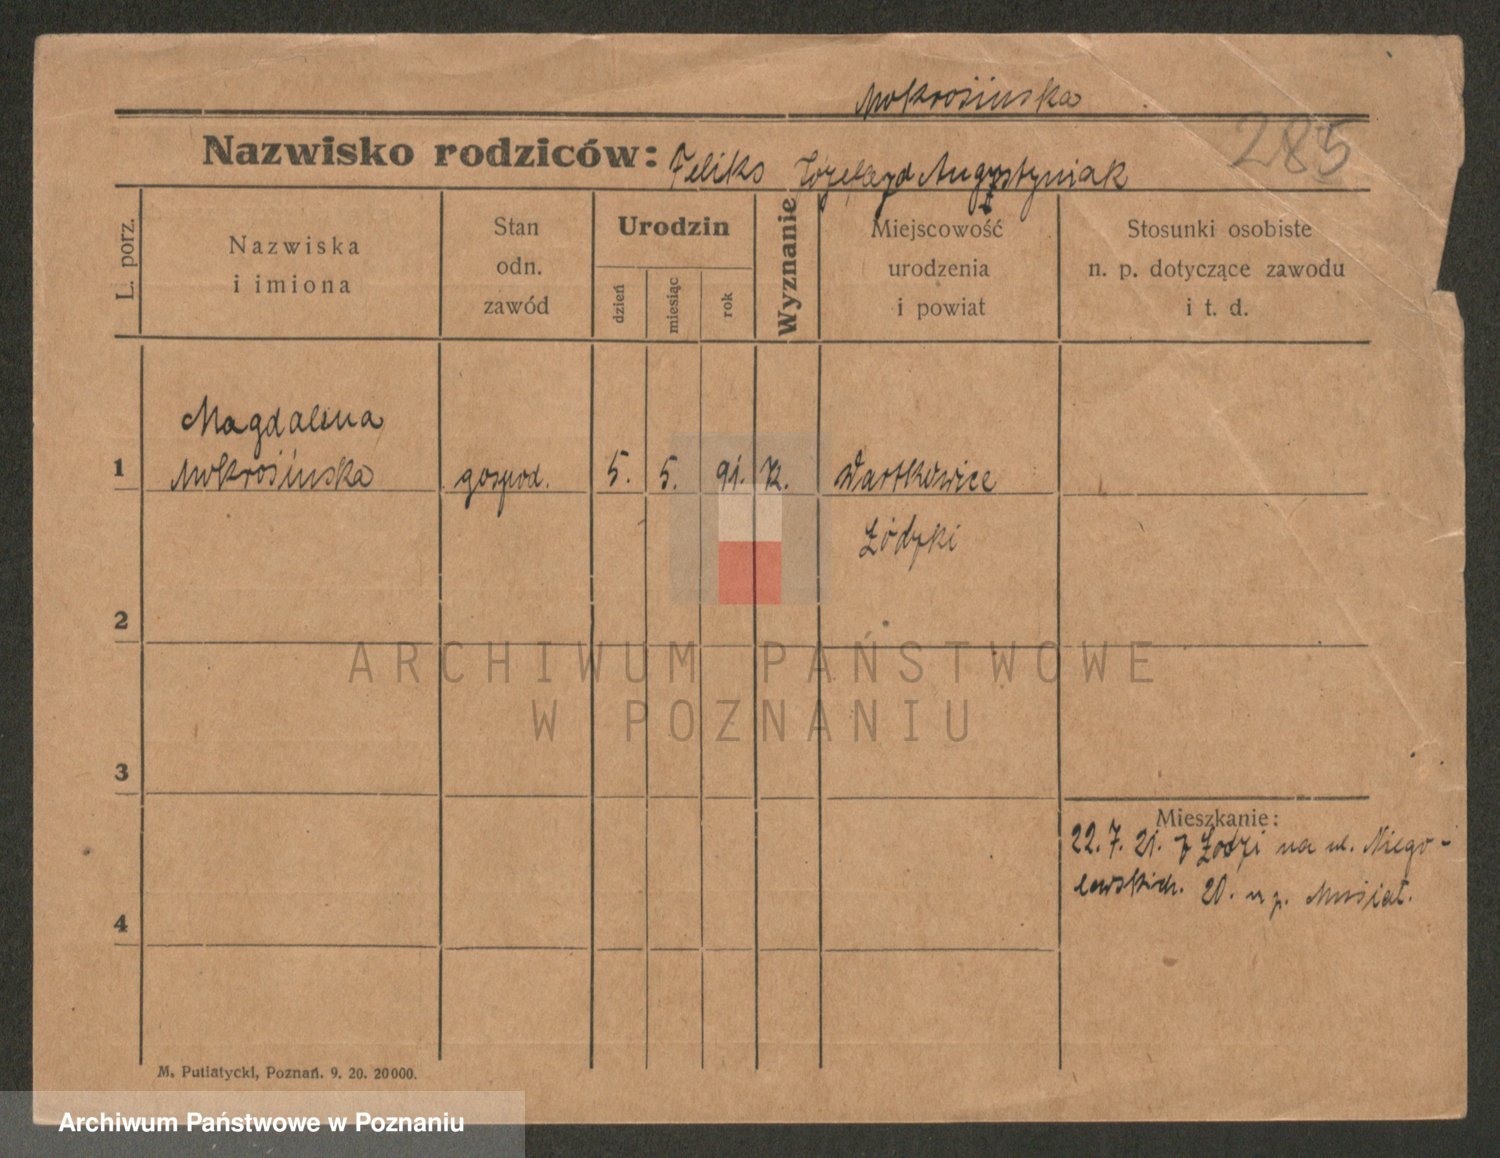 Mokrosińska
285
Nazwisko rodziców: Feliks Augystyniak
L. porz.
Nazwiska
i imiona
Stan
odn.
zawód
Urodzin
dzień
miesiąc
rok
Wyznanie
Miejscowość
urodzenia
i powiat
Stosunki osobiste
n. p. dotyczące zawodu
i t. d.
Magdalena
1 Mokrosińska gospod. 5. 5. 91. K. Wartkowice
Łódzki
2
ARCHIWUM PAŃSTWOWE
W POZNANIU
3
Mieszkanie:
22. 7. 21. z Łodzi na ul. Niego-
lewskich. 20. u p. Musiał.
4
M. Putiatycki, Poznań. 9. 20. 20000.
Archiwum Państwowe w Poznaniu